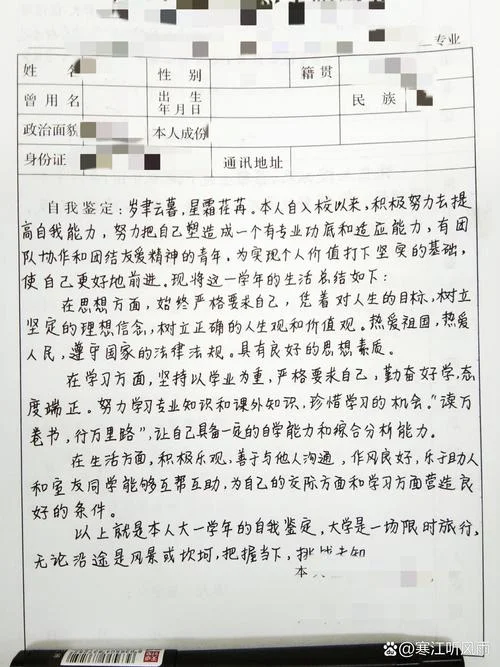 专业
姓 名 性 别 籍 贯
曾 用 名 出 生 年 月 日 民 族
政治面貌 本人成份
身份证 通讯地址
自我鉴定：岁聿云暮，星霜荏苒。本人自入校以来，积极努力去提
高自我能力，努力把自己塑造成一个有专业功底和适应能力，有团
队协作和团结友爱精神的青年。为实现个人价值打下坚实的基础，
使自己更好地前进。现将这一学年的生活总结如下：
在思想方面，始终严格要求自己，凭着对人生的目标，树立
坚定的理想信念，树立正确的人生观和价值观。热爱祖国，热爱
人民，遵守国家的法律法规。具有良好的思想素质。
在学习方面，坚持以学业为重，严格要求自己，勤奋好学，态
度端正。努力学习专业知识和课外知识，珍惜学习的机会。“读万
卷书，行万里路”，让自己具备一定的自学能力和综合分析能力。
在生活方面，积极乐观，善于与他人沟通，作风良好，乐于助人
和室友同学能够互帮互助，为自己的交际方面和学习方面营造良
好的条件。
以上就是本人大一学年的自我鉴定，大学是一场限时旅行，
无论沿途是风景或坎坷，把握当下，挑战未知
本
@寒江听风雨